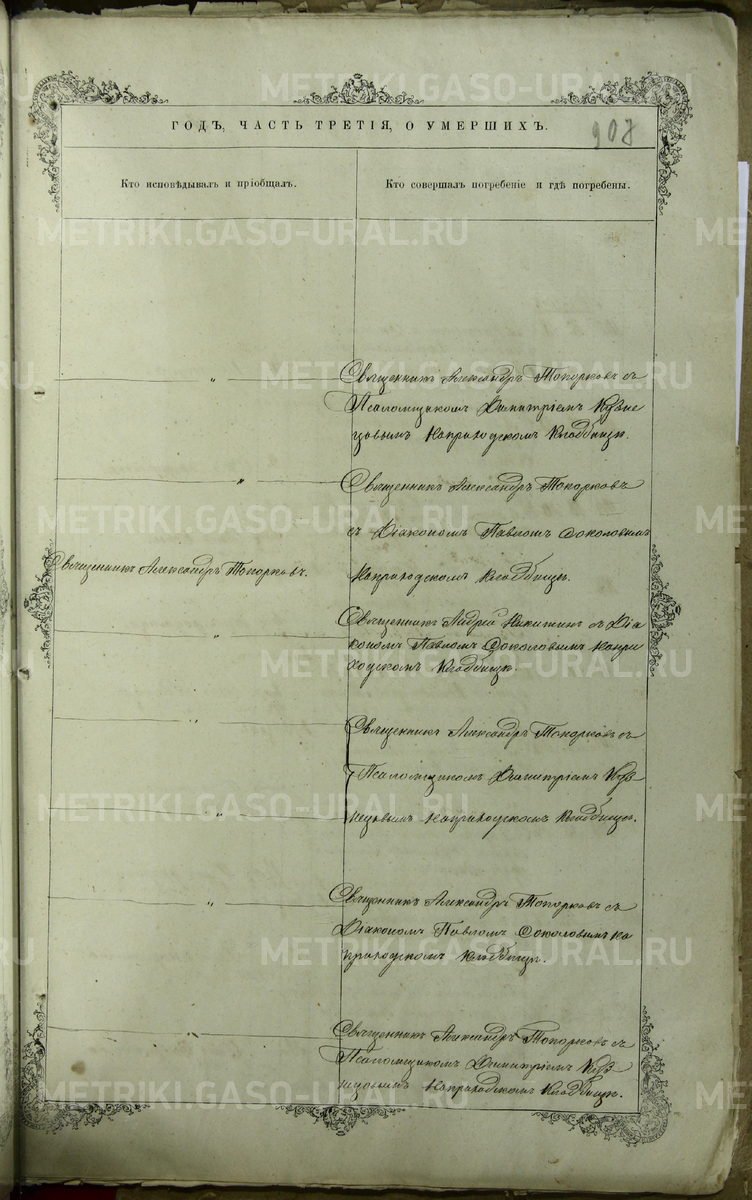 METRIKI.GASO-URAL.RU
ГОДЪ, ЧАСТЬ ТРЕТІЯ, О УМЕРШИХЪ.
907
Кто исповѣдывалъ и пріобщалъ.
Кто совершалъ погребеніе и гдѣ погребены.
"
Священникъ Александръ Топорковъ съ
Псаломщикомъ Димитріемъ Кузне
цовымъ на приходскомъ кладбищѣ.
"
Священникъ Александръ Топорковъ
съ Діакономъ Павломъ Соколовымъ
на приходскомъ кладбищѣ.
Священникъ Александръ Топорковъ.
Священникъ Андрей Никитинъ съ Діа
кономъ Павломъ Соколовымъ на при
ходскомъ кладбищѣ.
"
"
Священникъ Александръ Топорковъ съ
Псаломщикомъ Димитріемъ Куз
нецовымъ на приходскомъ кладбищѣ.
"
"
Священникъ Александръ Топорковъ съ
Діакономъ Павломъ Соколовымъ на
приходскомъ кладбищѣ.
Священникъ Александръ Топорковъ съ
Псаломщикомъ Димитріемъ Куз
нецовымъ на приходскомъ кладбищѣ.